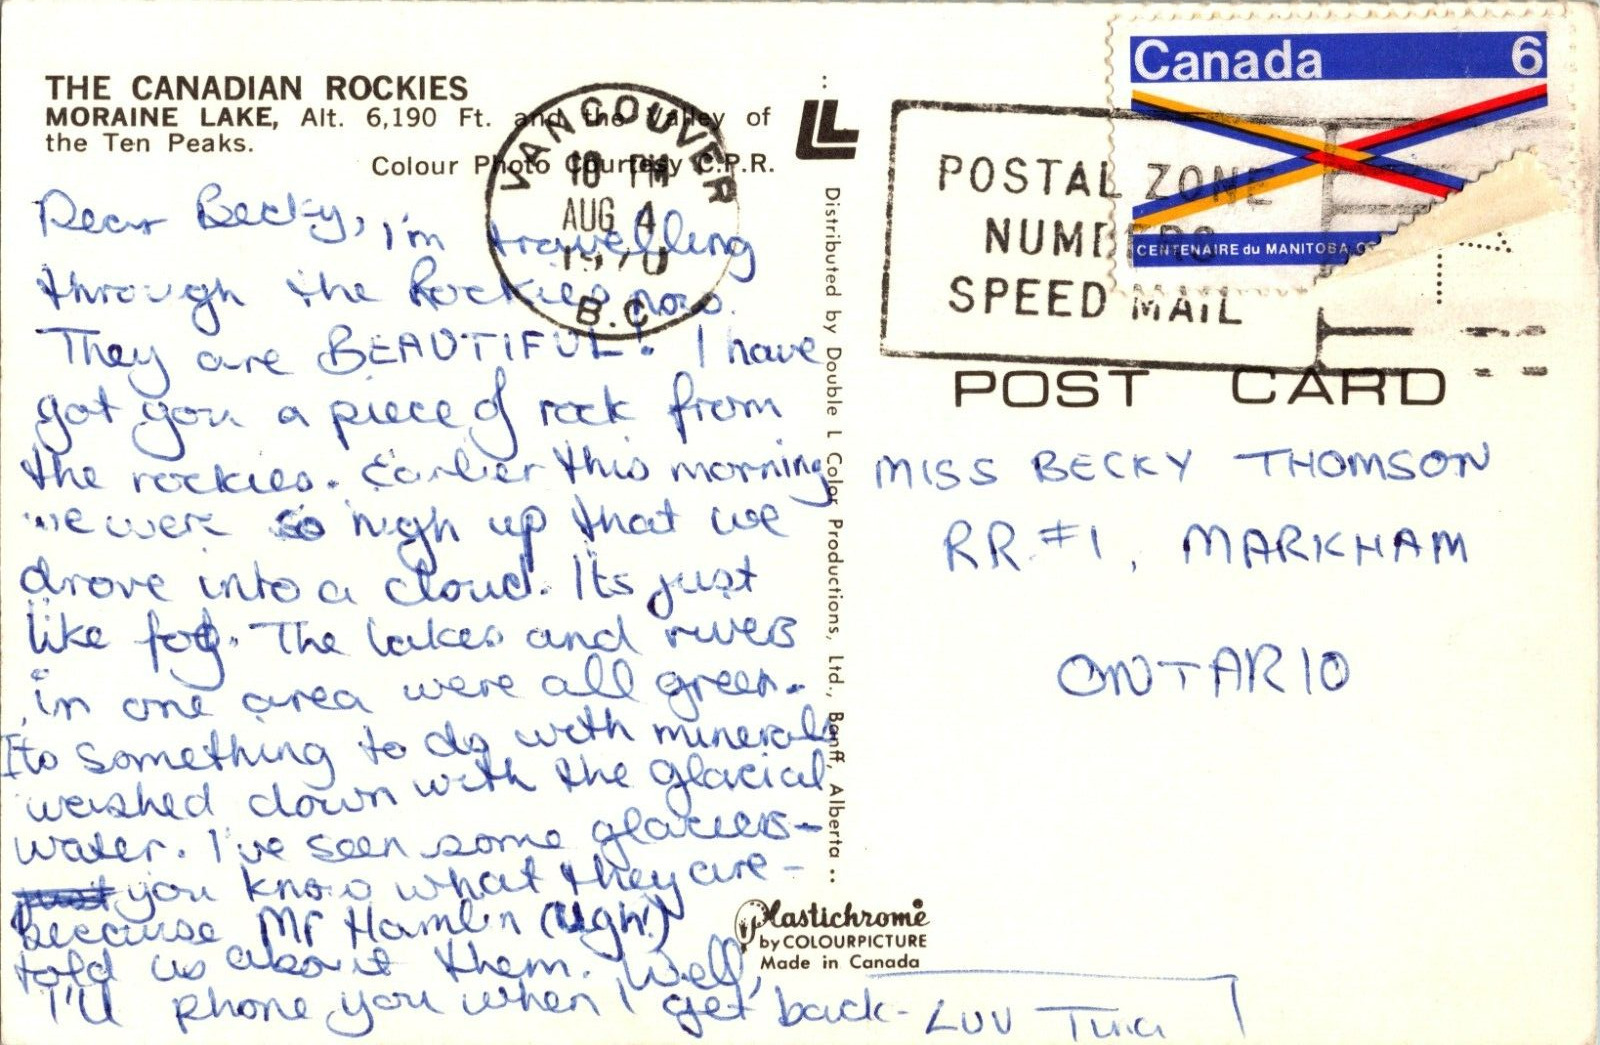 THE CANADIAN ROCKIES
MORAINE LAKE, Alt. 6,190 Ft. and the Valley of
the Ten Peaks.
Colour Photo Courtesy C.P.R.
Dear Becky, I'm travelling
through the Rockies now.
They are BEAUTIFUL! I have
got you a piece of rock from
the rockies. Earlier this morning
we were so high up that we
drove into a cloud. Its just
like fog. The lakes and rivers
in one area were all green.
Its something to do with minerals
washed down with the glacial
water. I've seen some glaciers -
you know what they are -
because Mr Hamlin (Ugh!)
told us about them. Well,
I'll phone you when I get back - LUV
VANCOUVER
10 PM
AUG 4
1970
B.C.
Distributed by Double L Color Productions, Ltd., Banff, Alberta
Plastichrome
by COLOURPICTURE
Made in Canada
Canada 6
CENTENAIRE du MANITOBA
POSTAL ZONE
NUMBERS
SPEED MAIL
POST CARD
MISS BECKY THOMSON
RR #1, MARKHAM
ONTARIO